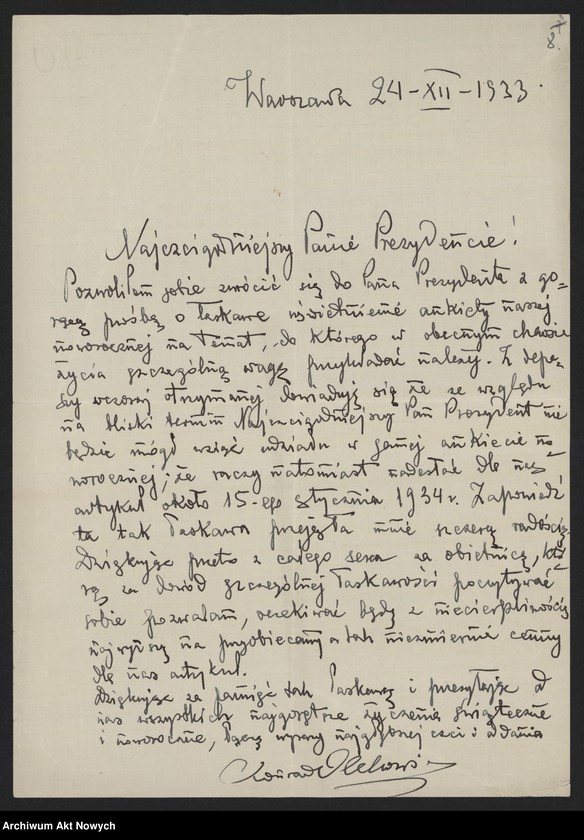 8.
Warszawa 24-XII-1933.
Najczcigodniejszy Panie Prezydencie!
Pozwoliłem sobie zwrócić się do Pana Prezydenta z go-
rącą prośbą o łaskawe uświetnienie ankiety naszej
noworocznej na temat, do którego w obecnym chwili
życia szczególną wagę przykładać należy. Z depe-
szy wczoraj otrzymanej dowiaduję się że ze względu
na bliski termin Najczcigodniejszy Pan Prezydent nie
będzie mógł wziąć udziału w samej ankiecie no
noworocznej; że raczy natomiast nadesłać dla nas
artykuł około 15-ego stycznia 1934 r. Zapowiedź
ta tak łaskawa przejęła mnie szczerą radością.
Dziękując przeto z całego serca za obietnicę, któ-
rą za dowód szczególnej łaskawości poczytywać
sobie pozwalam, oczekiwać będę z niecierpliwością
najwyższą na przyobiecany a tak niezmiernie cenny
dla nas artykuł.
Dziękując za pamięć tak łaskawą i przesyłając od
nas wszystkich najgorętsze życzenia świąteczne
i noworoczne, łączę wyrazy najgłębszej czci i oddania
Konrad Olchowicz
Archiwum Akt Nowych